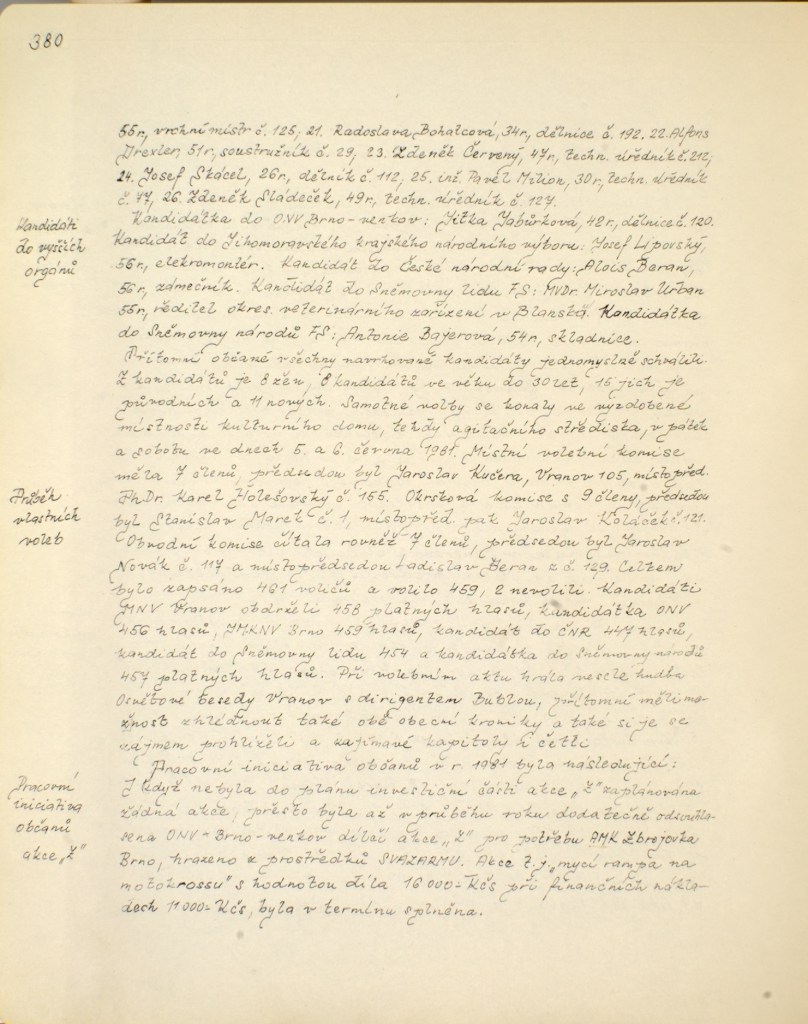 380
55r., vrchní mistr č. 125, 21. Radoslava Bohatcová, 34r., dělnice č. 192. 22. Alfons
Drexler, 51r., soustružník č. 29, 23. Zdeněk Červený, 47r., techn. úředník č. 212,
24. Josef Skácel, 26r., dělník č. 112, 25. inž. Pavel Milion, 30r., techn. úředník
č. 47, 26. Zdeněk Sládeček, 49r., techn. úředník č. 127.
Kandidáti
do vyšších
orgánů
Kandidátka do ONV Brno-venkov: Jitka Jabůrková, 42r., dělnice č. 120.
Kandidát do Jihomoravského krajského národního výboru: Josef Lipovský,
56r., elekromontér. Kandidát do České národní rady: Alois Beran,
56r., zámečník. Kandidát do Sněmovny lidu FS: MVDr. Miroslav Urban
55r., ředitel okres. veterinárního zařízení v Blansku. Kandidátka
do Sněmovny národů FS: Antonie Bajerová, 54r., skladnice.
Přítomní občané všechny navrhované kandidáty jednomyslně schválili.
Z kandidátů je 8 žen, 8 kandidátů ve věku do 30 let, 15 jich je
původních a 11 nových. Samotné volby se konaly ve vyzdobené
místnosti kulturního domu, tehdy agitačního střediska, v pátek
a sobotu ve dnech 5. a 6. června 1981. Místní volební komise
Průběh
vlastních
voleb
měla 7 členů, předsedou byl Jaroslav Kučera, Vranov 105, místopřed.
PhDr. Karel Holešovský č. 155. Okrsková komise s 9 členy, předsedou
byl Stanislav Marek č. 1, místopřed. pak Jaroslav Koláček č. 121.
Obvodní komise čítala rovněž 7 členů, předsedou byl Jaroslav
Novák č. 117 a místopředsedou Ladislav Beran z č. 129. Celkem
bylo zapsáno 461 voličů a volilo 459, 2 nevolili. Kandidáti
MNV Vranov obdrželi 458 platných hlasů, kandidátka ONV
456 hlasů, JMKNV Brno 459 hlasů, kandidát do ČNR 447 hlasů,
kandidát do Sněmovny lidu 454 a kandidátka do Sněmovny národů
457 platných hlasů. Při volebním aktu hrála veselá hudba
Osvětové besedy Vranov s dirigentem Bublou, přítomní měli mo-
žnost zhlédnout také obě obecní kroniky a také si je se
zájmem prohlíželi a zajímavé kapitoly i četli
Pracovní
iniciativa
občanů
akce „Z"
Pracovní iniciativa občanů v r. 1981 byla následující:
I když nebyla do plánu investiční části akce „Z" zaplánována
žádná akce, přesto byla až v průběhu roku dodatečně odsouhla-
sena ONV-Brno-venkov dílčí akce „Z" pro potřebu AMK Zbrojovka
Brno, hrazeno z prostředků SVAZARMU. Akce t.j. „mycí rampa na
motokrossu" s hodnotou díla 16 000= Kčs při finančních nákla-
dech 11 000= Kčs, byla v termínu splněna.